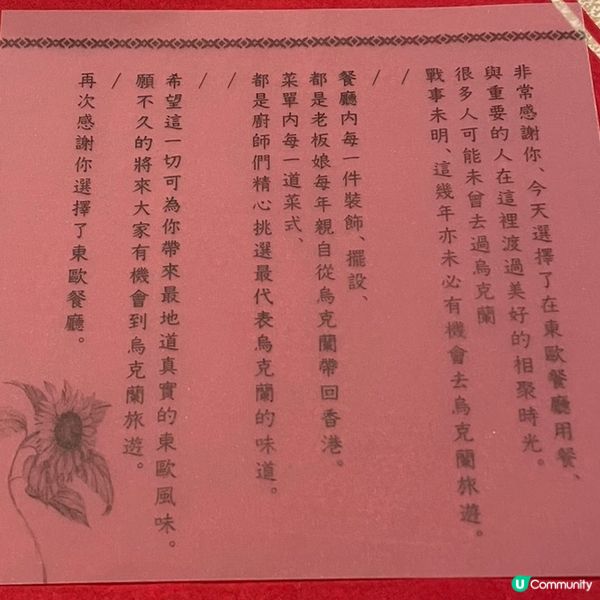 非常感謝你、今天選擇了在東歐餐廳用餐、
與重要的人在這裡渡過美好的相聚時光。
很多人可能未曾去過烏克蘭
戰事未明、這幾年亦未必有機會去烏克蘭旅遊。
/
/
餐廳內每一件裝飾、擺設、
都是老板娘每年親自從烏克蘭帶回香港。
菜單內每一道菜式、
都是廚師們精心挑選最代表烏克蘭的味道。
/
/
希望這一切可為你帶來最地道真實的東歐風味。
願不久的將來大家有機會到烏克蘭旅遊。
/
再次感謝你選擇了東歐餐廳。
U Community